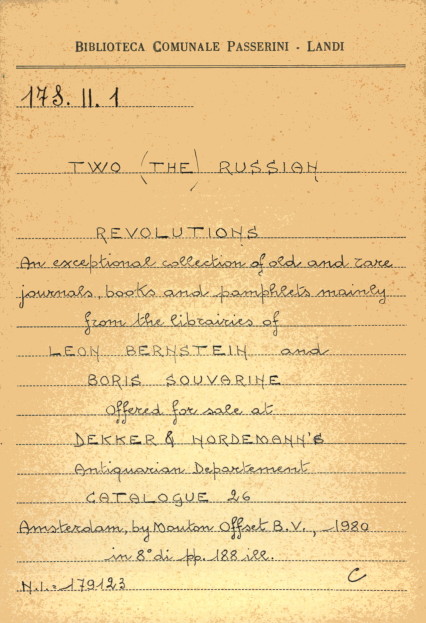 BIBLIOTECA COMUNALE PASSERINI - LANDI
17S. II. 1
TWO (THE) RUSSIAN
REVOLUTIONS
An exceptional collection of old and rare
journals, books and pamphlets mainly
from the librairies of
LEON BERNSTEIN and
BORIS SOUVARINE
Offered for sale at
DEKKER & NORDEMANN'S
Antiquarian Departement
CATALOGUE 26
Amsterdam, by Mouton Offset B.V., 1980
in 8° di pp. 188 ill.
N.I.= 179123 C